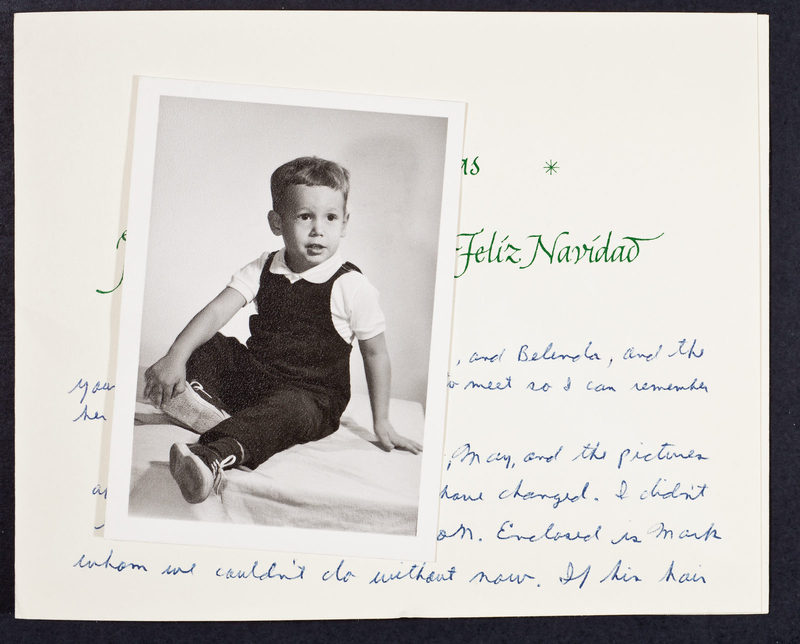 as *
Felíz Navidad
, and Belinda, and the
you to meet so I can remember
her
, May, and the pictures
have changed. I didn't
on. Enclosed is Mark
whom we couldn't do without now. If his hair